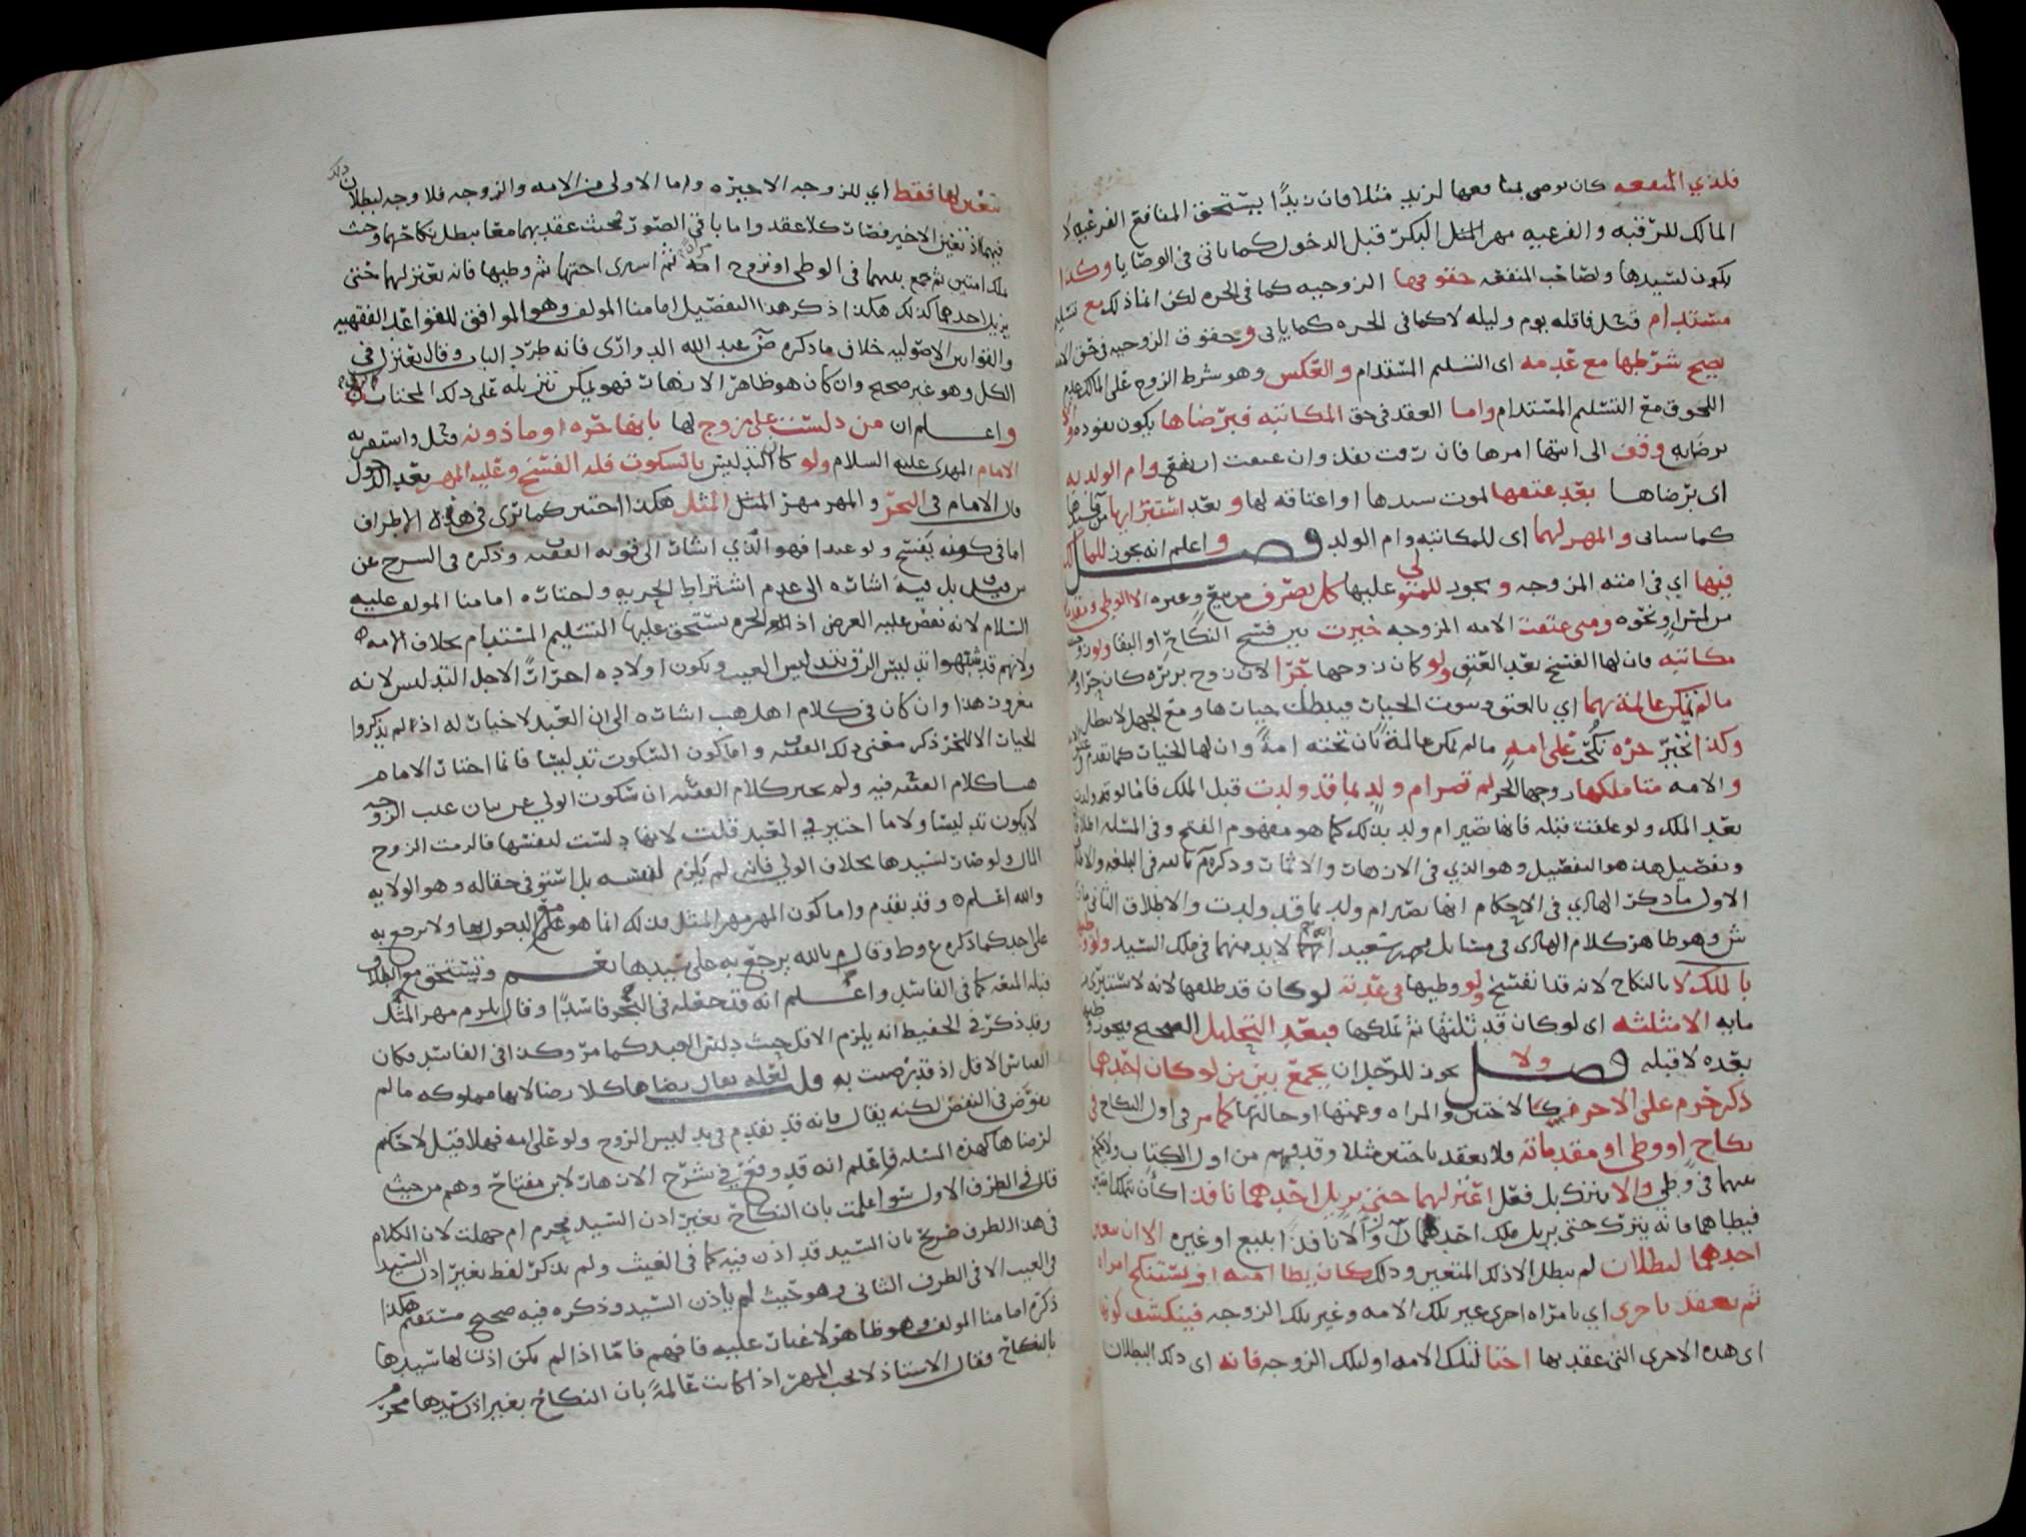 فلذي المنفعه كان يوصى بمنافعها لزيد مثلا فان زيدًا يستحق المنافع الفرعيه لا
المالك للرقبه والفرعيه مهر المثل البكر قبل الدخول كما ياتي في الوصايا وكذا
يكون لسيدها ولصاحب المنفعه حقوقها الزوجيه كما في الحره لكن انما ذلك مع تسليم
مستدام فثل فاقله يوم وليله لا كما في الحره كما ياتي وحقوق الزوجيه في حق الامه
يصح شرطها مع عدمه اي التسليم المستدام والعكس وهو شرط الزوج على المالك عدم
اللحوق مع التسليم المستدام واما العقد في حق المكاتبه فبرضاها يكون نفوذه ولا
برضايه وقف الى انتها امرها فان رقت نفذ وان عتقت وام الولد به
اي برضاها بعد عتقها لموت سيدها او اعتاقه لها وبعد استبرايها
كما سياتي والمهر لهما اي للمكاتبه وام الولد فصل واعلم انه يجوز للمالك
فيها اي في امته المزوجه ويجوز للمتولي عليها كل تصرف من بيع وغيره الا الوطي
ونحوه ومتى عتقت الامه المزوجه خيرت بين فسخ النكاح او البقا ولو
مكاتبه فان لها الفسخ بعد العتق ولو كان زوجها حرا لان زوج بريره كان حرا
ما لم تمكن عالمة بهما اي بالعتق وثبوت الخيار فيبطل خيارها ومع الجهل لا يبطل
وكذا تخير حره نكحت على امه ما لم تكن عالمة بان تحته امة وان لها الخيار كما تقدم
والامه متا ملكها زوجها الحر لم تصر ام ولد بما قد ولدت قبل الملك فاما لو قد ولدت
بعد الملك ولو علقت قبله فانها تصير ام ولد بذلك كما هو مفهوم الفتح وفي المسله اطلاق
وتفصيل هذا هو التفصيل وهو الذي في الازهار والاثمار وذكره م بالله في البلغه والاطلاق
الاول ما ذكره الهادي في الاحكام انها تصير ام ولد بما قد ولدت والاطلاق الثاني
ش وهو ظاهر كلام الهادي في مسايل محمد بن سعيد لا بد منهما في ملك السيد ولو
بالملك لا بالنكاح لانه قد انفسخ ولو وطيها في عدته لو كان قد طلقها لانه لا تستبرى
مايه الا مثلثه اي لو كان قد ثلثها ثم تملكها فبعد التحليل الصحيح فيجوز
بعده لا قبله فصل ولا يجوز للرجل ان يجمع بين من لو كان احدهما
ذكر حرم على الاخر كالاختين والمراه وعمتها او خالتها كما مر في اول النكاح في
نكاح او وطي او مقدماته فلا يعقد باختين مثلا وقد فهم من اول الكتاب ولا يجمع
بينهما في وطي والا يترك بل فعل اعتزلهما حتى يزيل احدهما نافذا كان تملك امتين
فيطاهما فانه يترك حتى يزيل ملك احدهما زوالا نافذا ببيع او غيره الا ان تعين
احدهما لبطلان لم يبطل الا ذلك المتعين وذلك كان يطا امته او يستنكح امراه
ثم يعقد باخرى اي بامراه اخرى غير تلك الامه وغير تلك الزوجه فينكشف كونها
اي هذه الاخرى التي عقد بها اختا لتلك الامه او لتلك الزوجه فانه اي ذلك البطلان
تعين لها فقط اي للزوجه الاخيره واما الاولى من الامه والزوجه فلا وجه لبطلان ذلك
فيهما اذ تعين الاخير فصار كلا عقد واما باقي الصور بحيث عقد بهما معا بطل نكاحهما وحيث
ملك امتين ثم جمع بينهما في الوطي او تزوج امراه ثم اشترى اختها ثم وطيها فانه يعتزلهما حتى
يزيل احدهما كذلك هكذا ذكر هذا التفصيل امامنا المولف وهو الموافق للقواعد الفقهيه
والقوانين الاصوليه خلاف ما ذكره عبد الله الدواري فانه طرد الباب وقال يعتزل في
الكل وهو غير صحيح وان كان هو ظاهر الازهار فهو يمكن تنزيله على ذلك المختار
واعلم ان من دلست على مزوج لها بانها حره او ماذونه فثل واستقربه
الامام المهدي عليه السلام ولو كان التدليس بالسكوت فله الفسخ وعليه المهر بعد الدخول
قال الامام في البحر والمهر مهر المثل المثل هكذا اختير كما ترى في هذه الاطراف
اما في كونه يفسخ ولو عبدا فهو الذي اشار الى قوته الفقيه وذكره في الشرح عن
بل فيه اشاره الى عدم اشتراط الحريه ولختاره امامنا المولف عليه
السلام لانه نقص عليه الغرض اذ الحره تستحق عليها التسليم المستدام بخلاف الامه
ولانهم قد شبهوا تدليس الرق بتدليس العيب وتكون اولاده احرارًا لاجل التدليس لانه
مغرور هذا وان كان في كلام اهل المذهب اشاره الى ان العبد لا خيار له اذ لم يذكروا
الخيار الا للحر ذكر معنى ذلك الفقيه واما كون السكوت تدليسًا فانما اختار الامام
هنا كلام الفقيه فيه ولم يختر كلام الفقيه ان سكوت الولي عن بيان عيب الزوجه
لا يكون تدليسًا ولا ما اختير في العبد قلت لانها دلست لنفسها فالزمت الزوج
المال ولو صار لسيدها بخلاف الولي فانه لم يلزم لنفسه بل استوفي حقا له وهو الولايه
والله اعلم وقد تقدم واما كون المهر مهر المثل فذلك انما هو على الدخول بها ولا يرجع به
على احد كما ذكره ع وط وقال م بالله يرجع به على سيدها نعم وتستحق مع الطلاق
قبله المتعه كما في الفاسد واعلم انه قد جعله في البحر فاسدًا وقال يلزم مهر المثل
وقد ذكر في الحفيظ انه يلزم الاقل حيث دلس العبد كما مر وكذا في الفاسد فكان
القياس الاقل اذ قد رضيت به قلت لعله يقال رضاها كلا رضا لانها مملوكه ما لم
يفوض في النقص لكنه يقال فانه قد تقدم في تدليس الزوج ولو على امه فهلا قيل لا حكم
لرضاها كهذه المسله فاعلم انه قد وقع في شرح الازهار لابن مفتاح وهم من حيث
قال في الطرف الاول سوا علمت بان النكاح بغير اذن السيد محرم ام جهلت لان الكلام
في هذا الطرف صريح بان السيد قد اذن فيه كما في الغيث ولم يذكر لفظ بغير اذن السيد
في الغيث الا في الطرف الثاني وهو حيث لم ياذن السيد وذكره فيه صحيح مستقيم هكذا
ذكره امامنا المولف وهو ظاهر لا غبار عليه فافهم فاما اذا لم يكن اذن لها سيدها
بالنكاح فقال الاستاذ لا يجب المهر اذا كانت عالمةً بان النكاح بغير اذن سيدها محرم